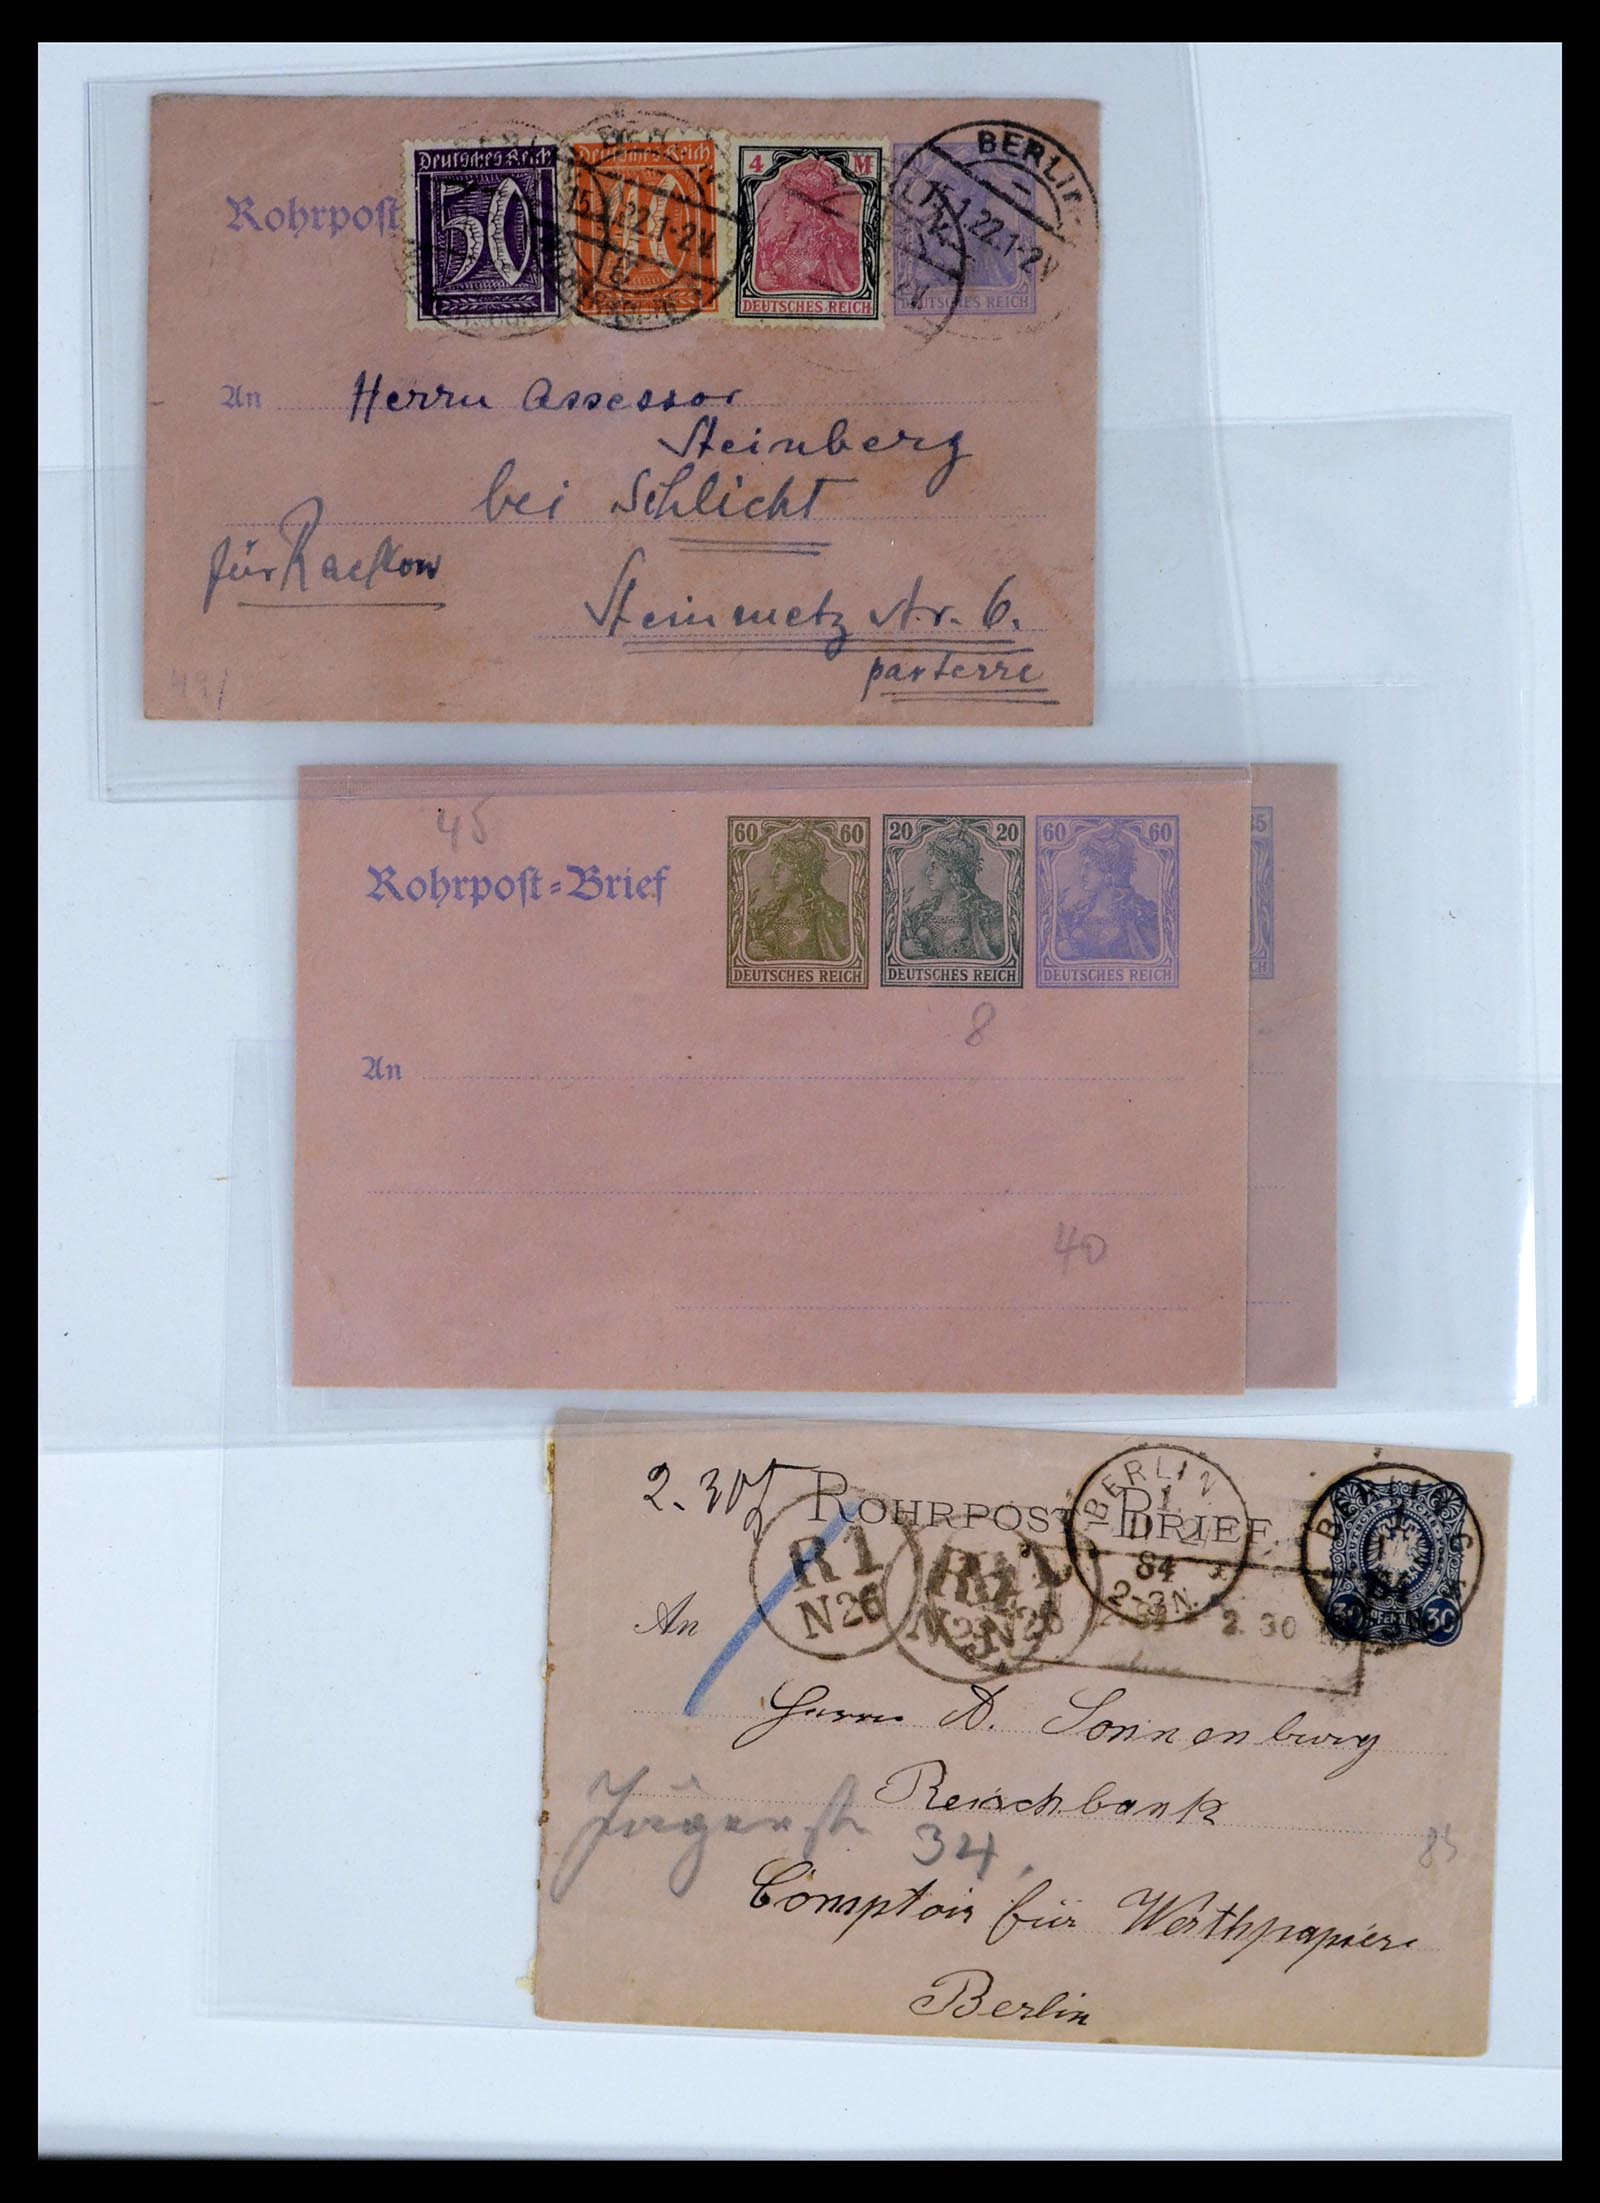 Rohrpost
Deutsches Reich
50
Deutsches Reich
10
4 M
DEUTSCHES REICH
BERLIN
15.1.22.1-2V
15.1.22.1-2V
DEUTSCHES REICH
An Herrn Assessor
Steinberg
bei Schlicht
für Rackow
Steinmetz str. 6.
parterre
49/
45
Rohrpost=Brief
60 60
DEUTSCHES REICH
20 20
DEUTSCHES REICH
60 60
DEUTSCHES REICH
35
8
An
40
2.30
ROHRPOST-BRIEF.
BERLIN
1
84
2-3N.
R1
N26
2.30
30 PFENNIG 30
An
Herrn A. Sonnenburg
Reichbank
Jägerstr 34.
Comptoir für Werthpapiere
Berlin